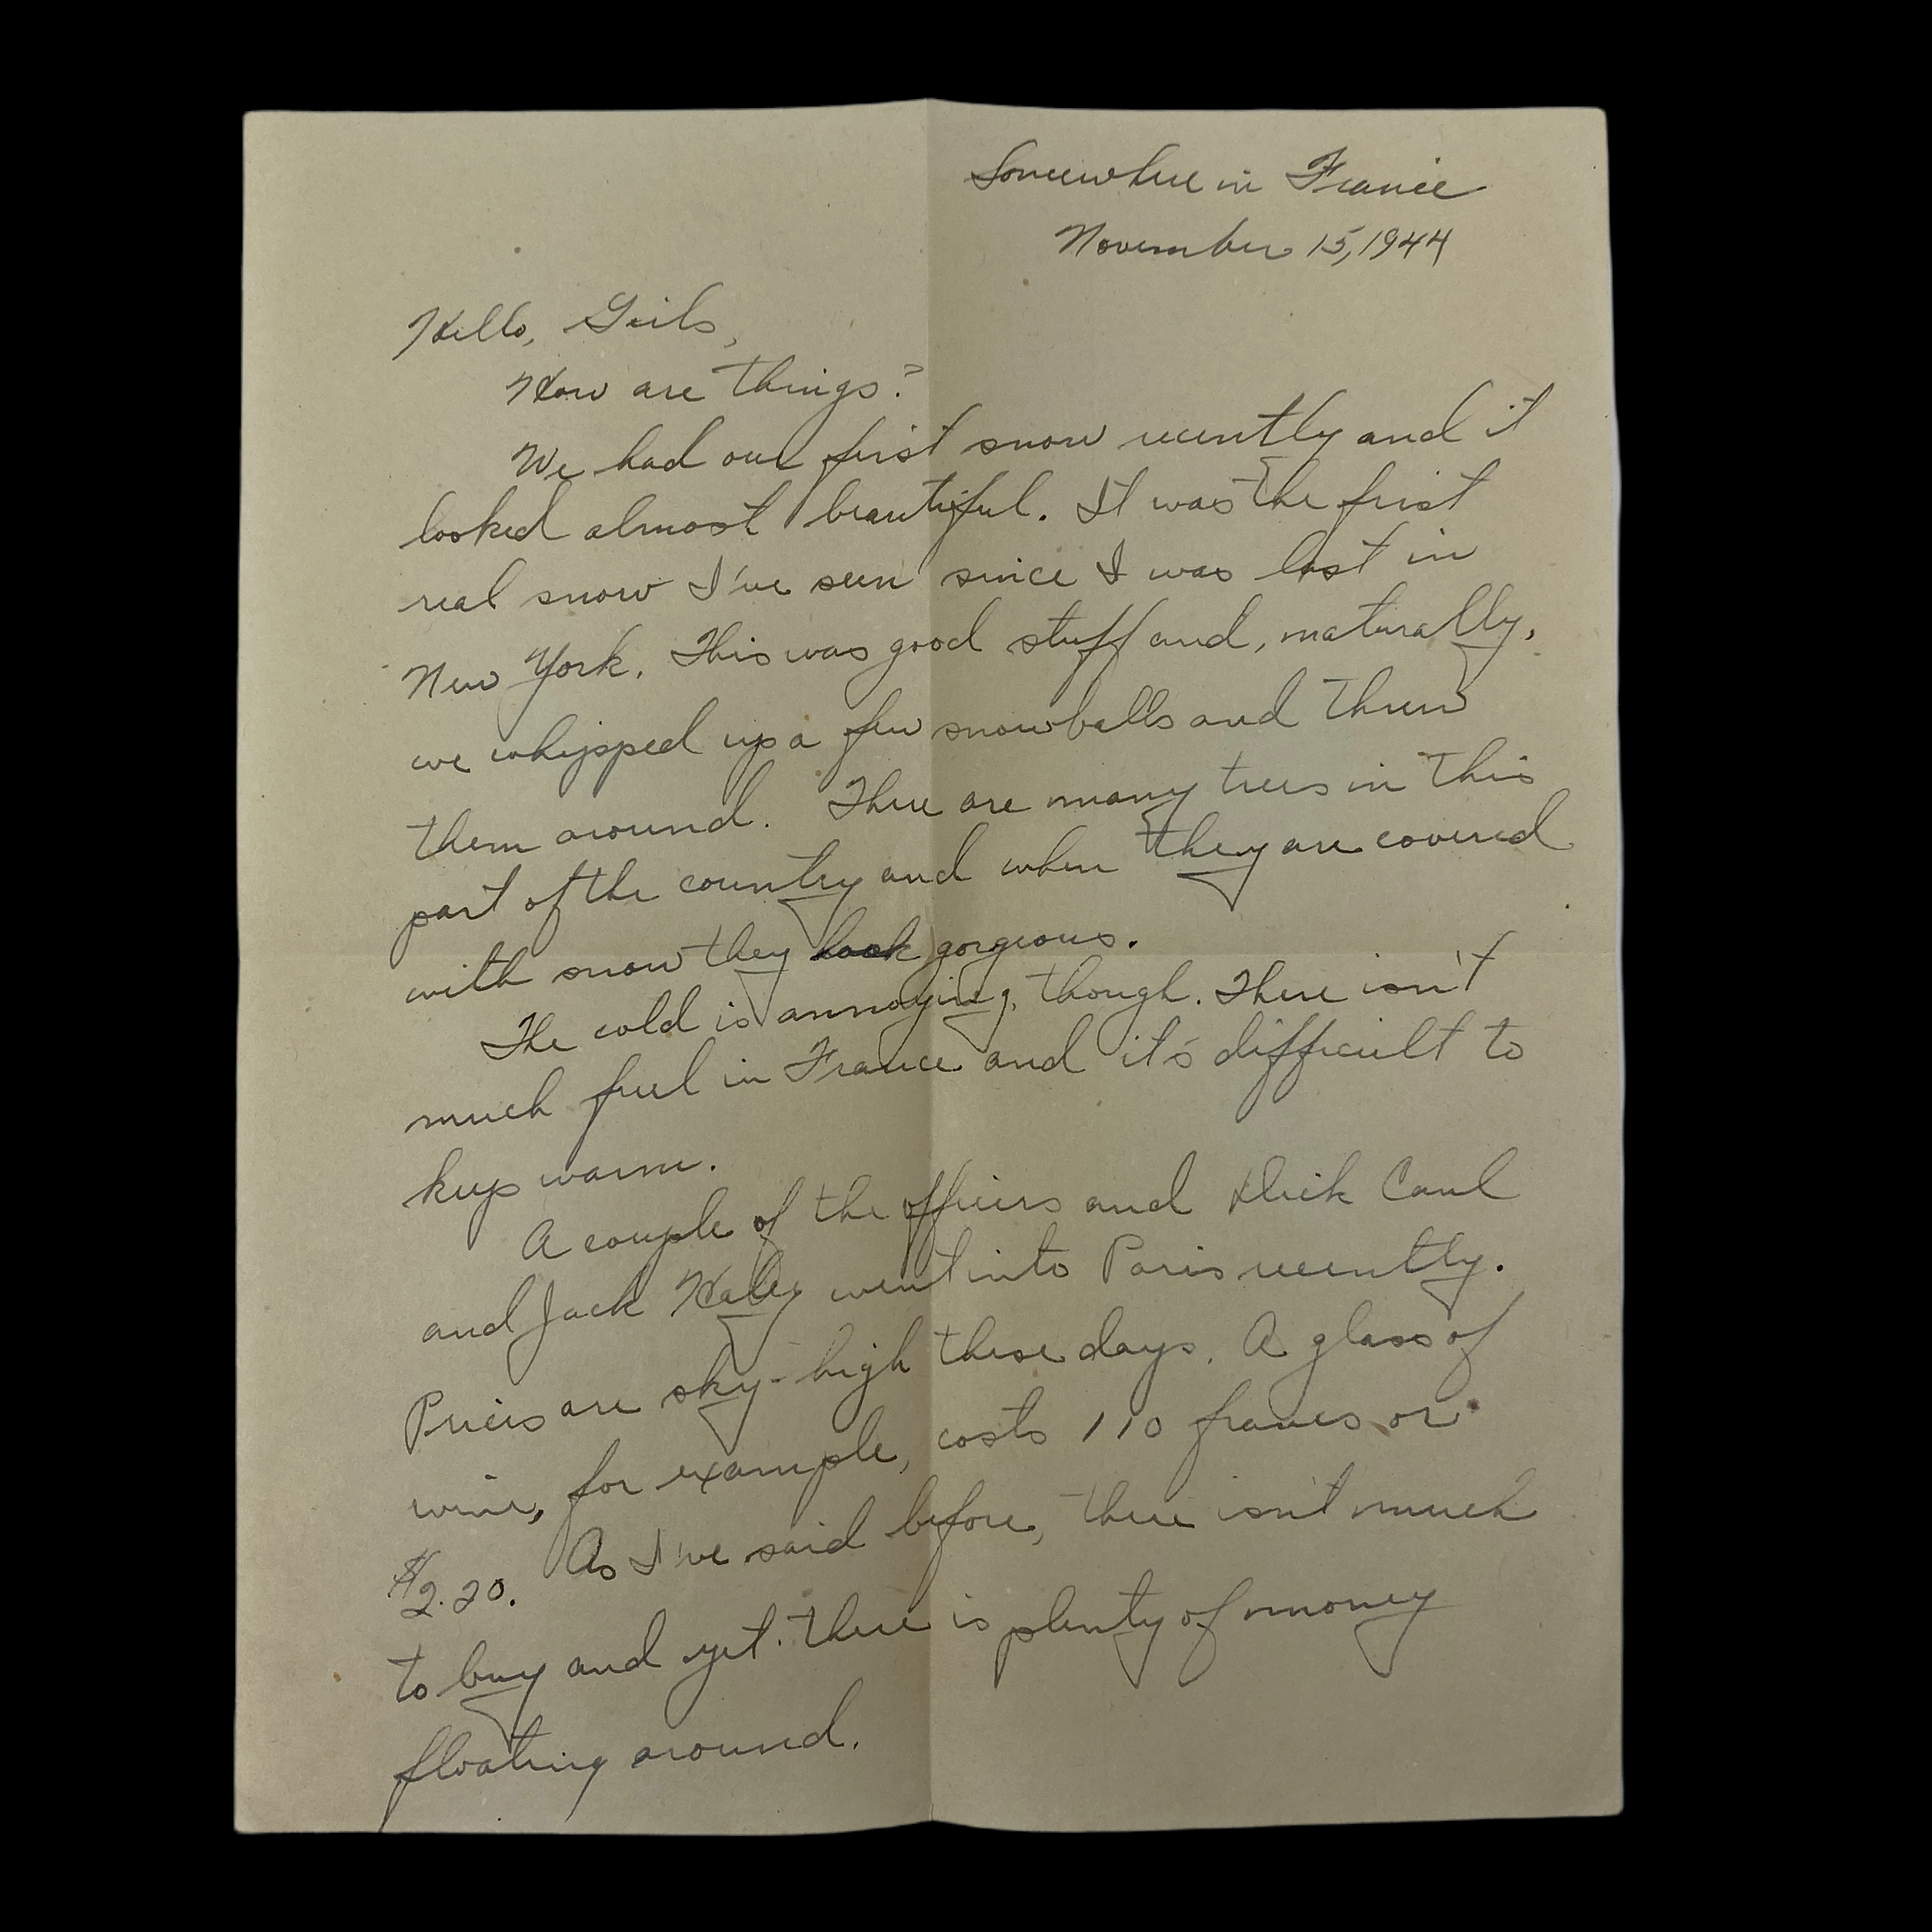 Somewhere in France
November 15, 1944
Hello, Girls,
How are things?
We had our first snow recently and it
looked almost beautiful. It was the first
real snow I've seen since I was last in
New York. This was good stuff and, naturally,
we whipped up a few snowballs and threw
them around. There are many trees in this
part of the country and when they are covered
with snow they look gorgeous.
The cold is annoying, though. There isn't
much fuel in France and it's difficult to
keep warm.
A couple of the officers and Dick Caul
and Jack Haley went into Paris recently.
Prices are sky-high these days. A glass of
wine, for example, costs 110 francs or
$2.20. As I've said before, there isn't much
to buy and yet there is plenty of money
floating around.